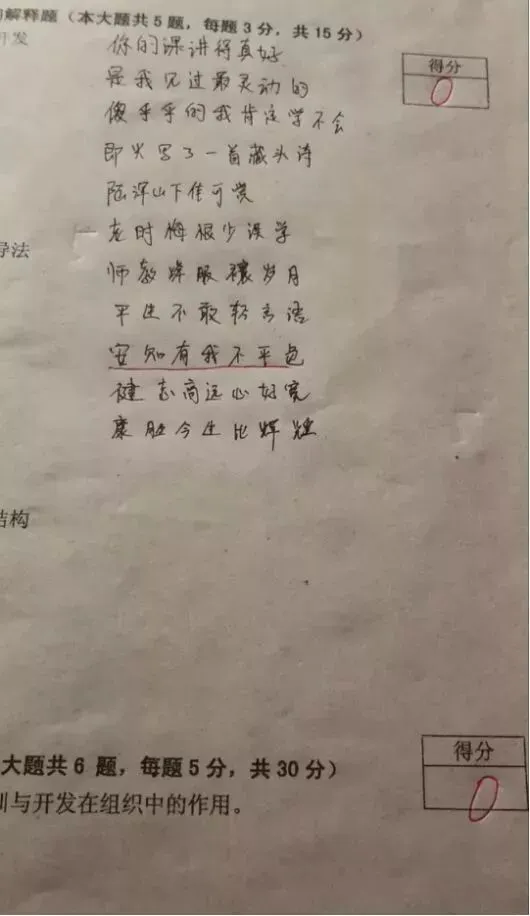 解释题（本大题共5题，每题3分，共15分）
开发
得分
0
你的课讲得真好
是我见过最灵动的
傻乎乎的我肯定学不会
即兴写了一首藏头诗
陆深山下佳可赏
龙时悔恨少误学
导法
师教
服
岁月
平生不敢轻言语
安知有我不平色
健志高远心好宽
康胜今生比辉煌
结构
得分
0
大题共6 题，每题5分，共30分）
训与开发在组织中的作用。